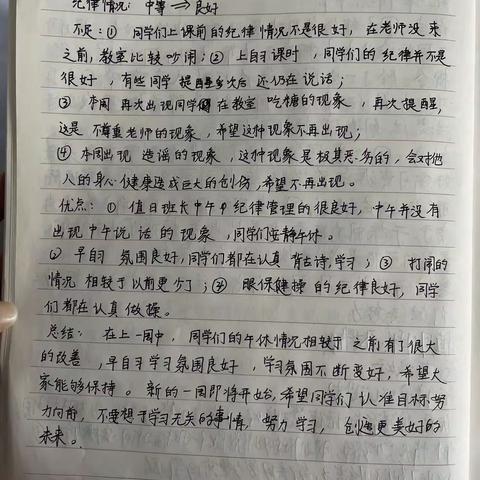 纪律情况：中等 ⇒ 良好
不足：① 同学们上课前的纪律情况不是很好，在老师没来
之前，教室比较吵闹；② 上自习课时，同学们的纪律并不是
很好，有些同学提醒多次后还仍在说话；
③ 本周再次出现同学们在教室吃糖的现象，再次提醒，
这是不尊重老师的现象，希望这种现象不再出现；
④ 本周出现造谣的现象，这种现象是极其恶劣的，会对他
人的身心健康造成巨大的创伤，希望不再出现。
优点：① 值日班长中午中纪律管理的很良好，中午并没有
出现中午说话的现象，同学们安静午休。
② 早自习氛围良好，同学们都在认真背古诗，学习；③ 打闹的
情况相较于以前更少了；④ 眼保健操的纪律良好，同学
们都在认真做操。
总结：在上一周中，同学们的午休情况相较于之前有了很大
的改善，早自习学习氛围良好，学习氛围不断变好，希望大
家能够保持。新的一周即将开始，希望同学们认准目标努
力向前，不要想于学习无关的事情，努力学习，创造更美好的
未来。